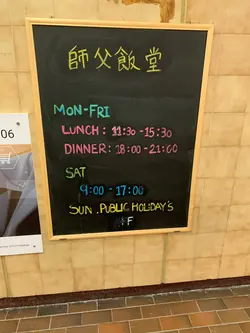 06
師父飯堂
MON-FRI
LUNCH: 11:30-15:30
DINNER: 18:00-21:00
SAT
9:00-17:00
SUN, PUBLIC HOLIDAY'S